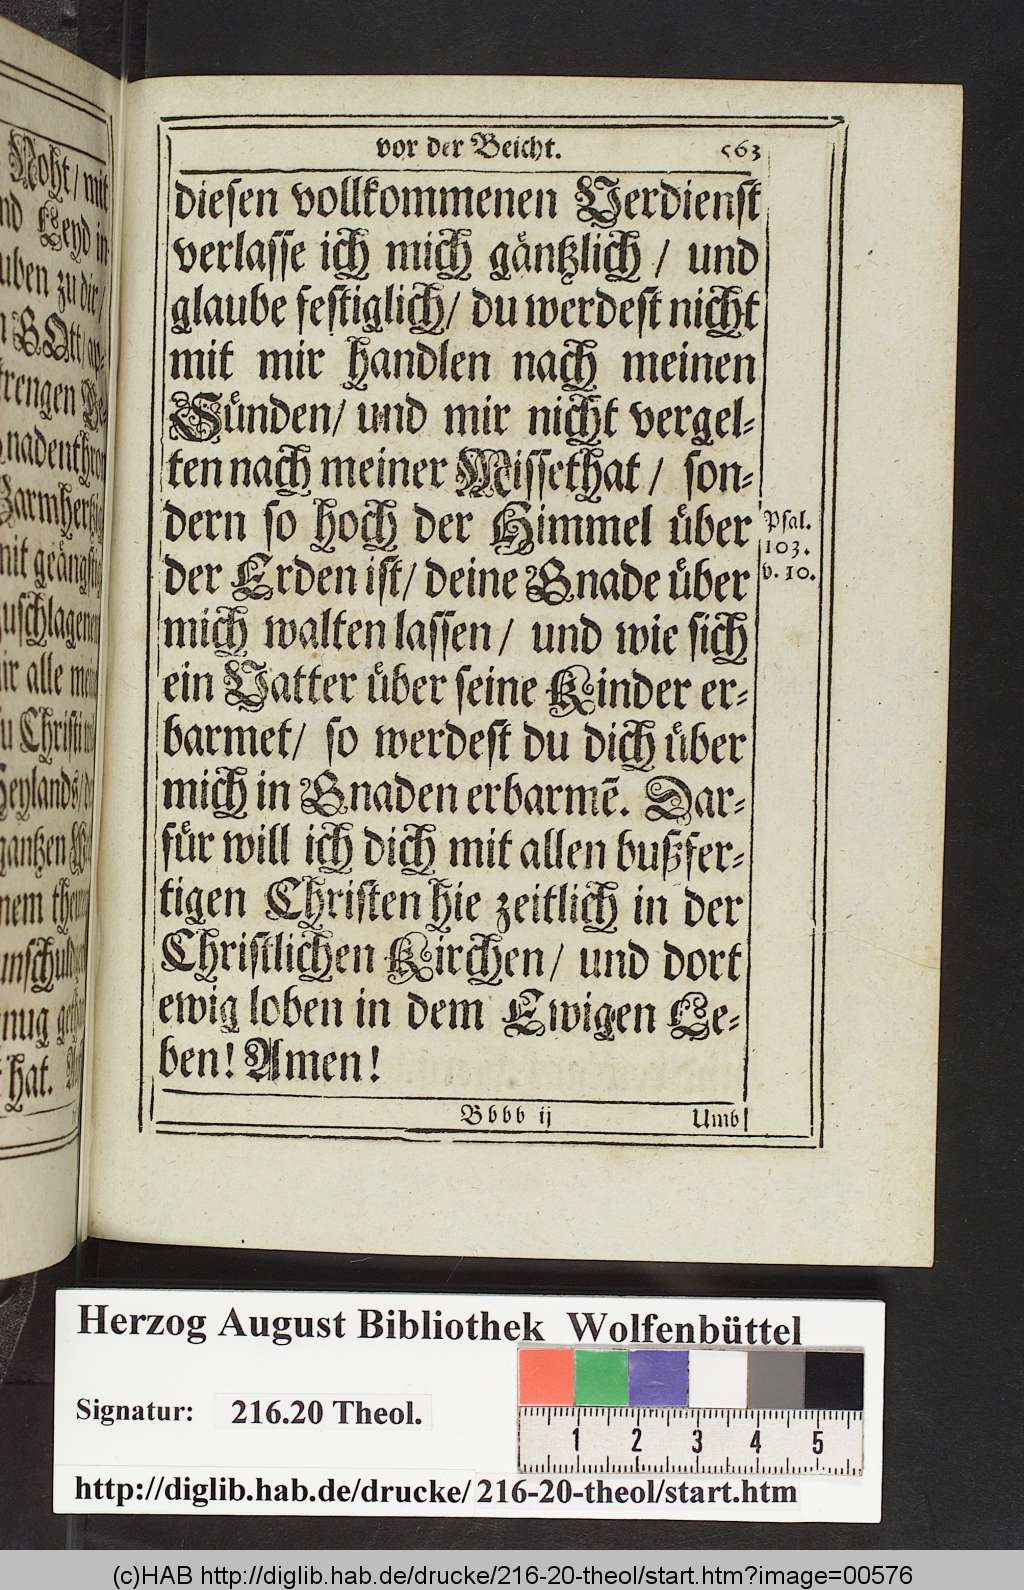 Noht/ mit
nd Leyd in
uben zu dir/
GOtt/
trengen
nadenthron
armhertzig
mit geängstig
zuschlagenen
ir alle mein
Christi
Heylands/
gantzen
nem
unschuld
nug
hat.
vor der Beicht. 563
diesen vollkommenen Verdienst
verlasse ich mich gäntzlich / und
glaube festiglich/ du werdest nicht
mit mir handlen nach meinen
Sünden/ und mir nicht vergel-
ten nach meiner Missethat / son-
dern so hoch der Himmel über
der Erden ist/ deine Gnade über
mich walten lassen/ und wie sich
ein Vatter über seine Kinder er-
barmet/ so werdest du dich über
mich in Gnaden erbarmẽ. Dar-
für will ich dich mit allen bußfer-
tigen Christen hie zeitlich in der
Christlichen Kirchen/ und dort
ewig loben in dem Ewigen Le-
ben! Amen!
Psal.
103.
v. 10.
Bbbb ij Umb
Herzog August Bibliothek Wolfenbüttel
Signatur: 216.20 Theol.
1 2 3 4 5
http://diglib.hab.de/drucke/ 216-20-theol/start.htm
(c)HAB http://diglib.hab.de/drucke/216-20-theol/start.htm?image=00576